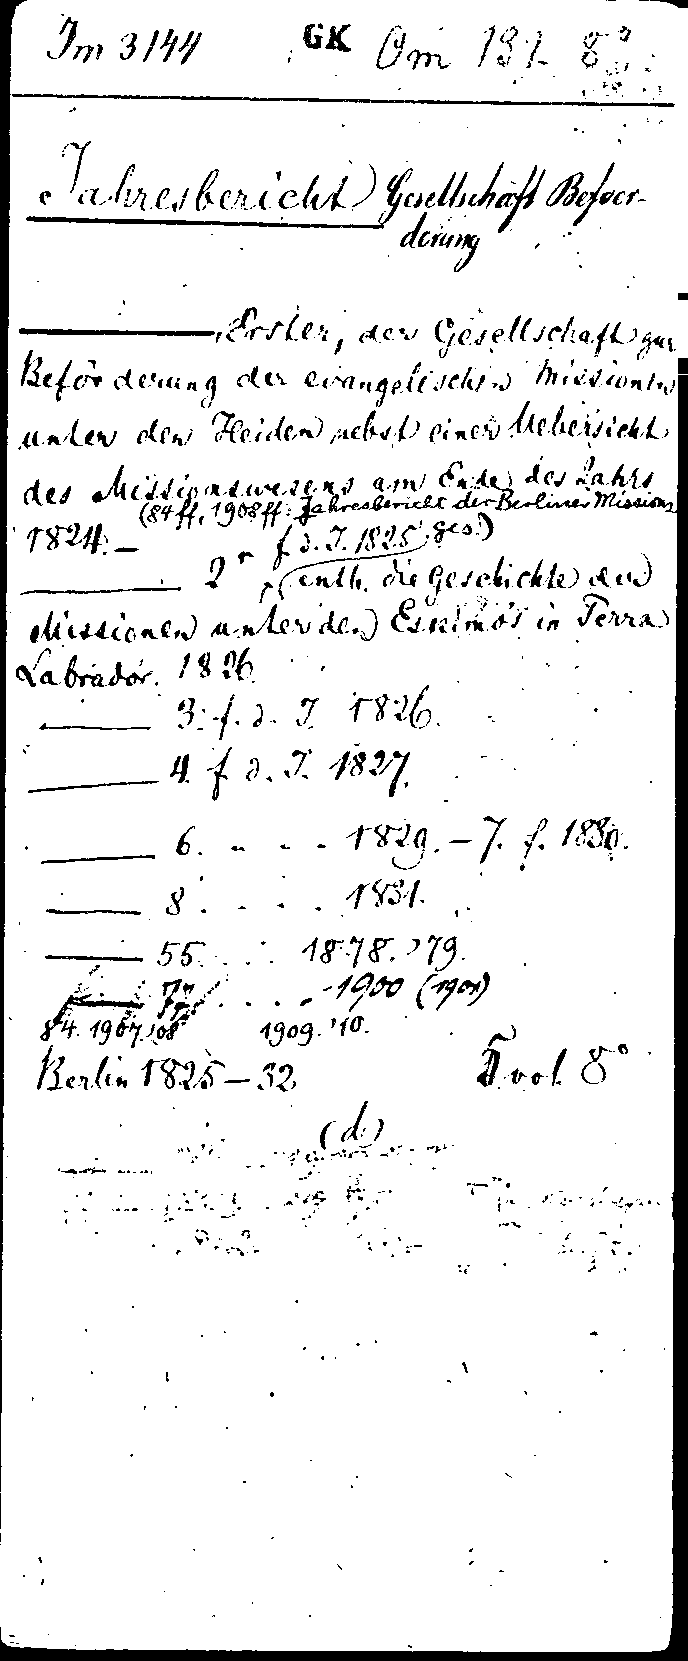 Im 3144 GK Om 137 8°
Jahresbericht Gesellschaft Befoer-
derung
———, Erster, der Gesellschaft zur
Beförderung der evangelischen Missionen
unter den Heiden nebst einer Uebersicht
des Missionswesens am Ende des Jahrs
(84ff, 1908ff: Jahresbericht der Berliner Missions
1824. – ges.)
——— 2r f. d. J. 1825 (enth. die Geschichte der
Missionen unter den Eskimo's in Terra
Labrador. 1826
——— 3. f. d. J. 1826.
——— 4. f. d. J. 1827.
——— 6. " " " 1829. – 7. f. 1830.
——— 8. . . . 1831.
——— 55. . . . 1878. '79.
——— . . . . 1900 (1901)
84. 1907.'08 1909.'10.
Berlin 1825–32 5 vol. 8°
(d.)